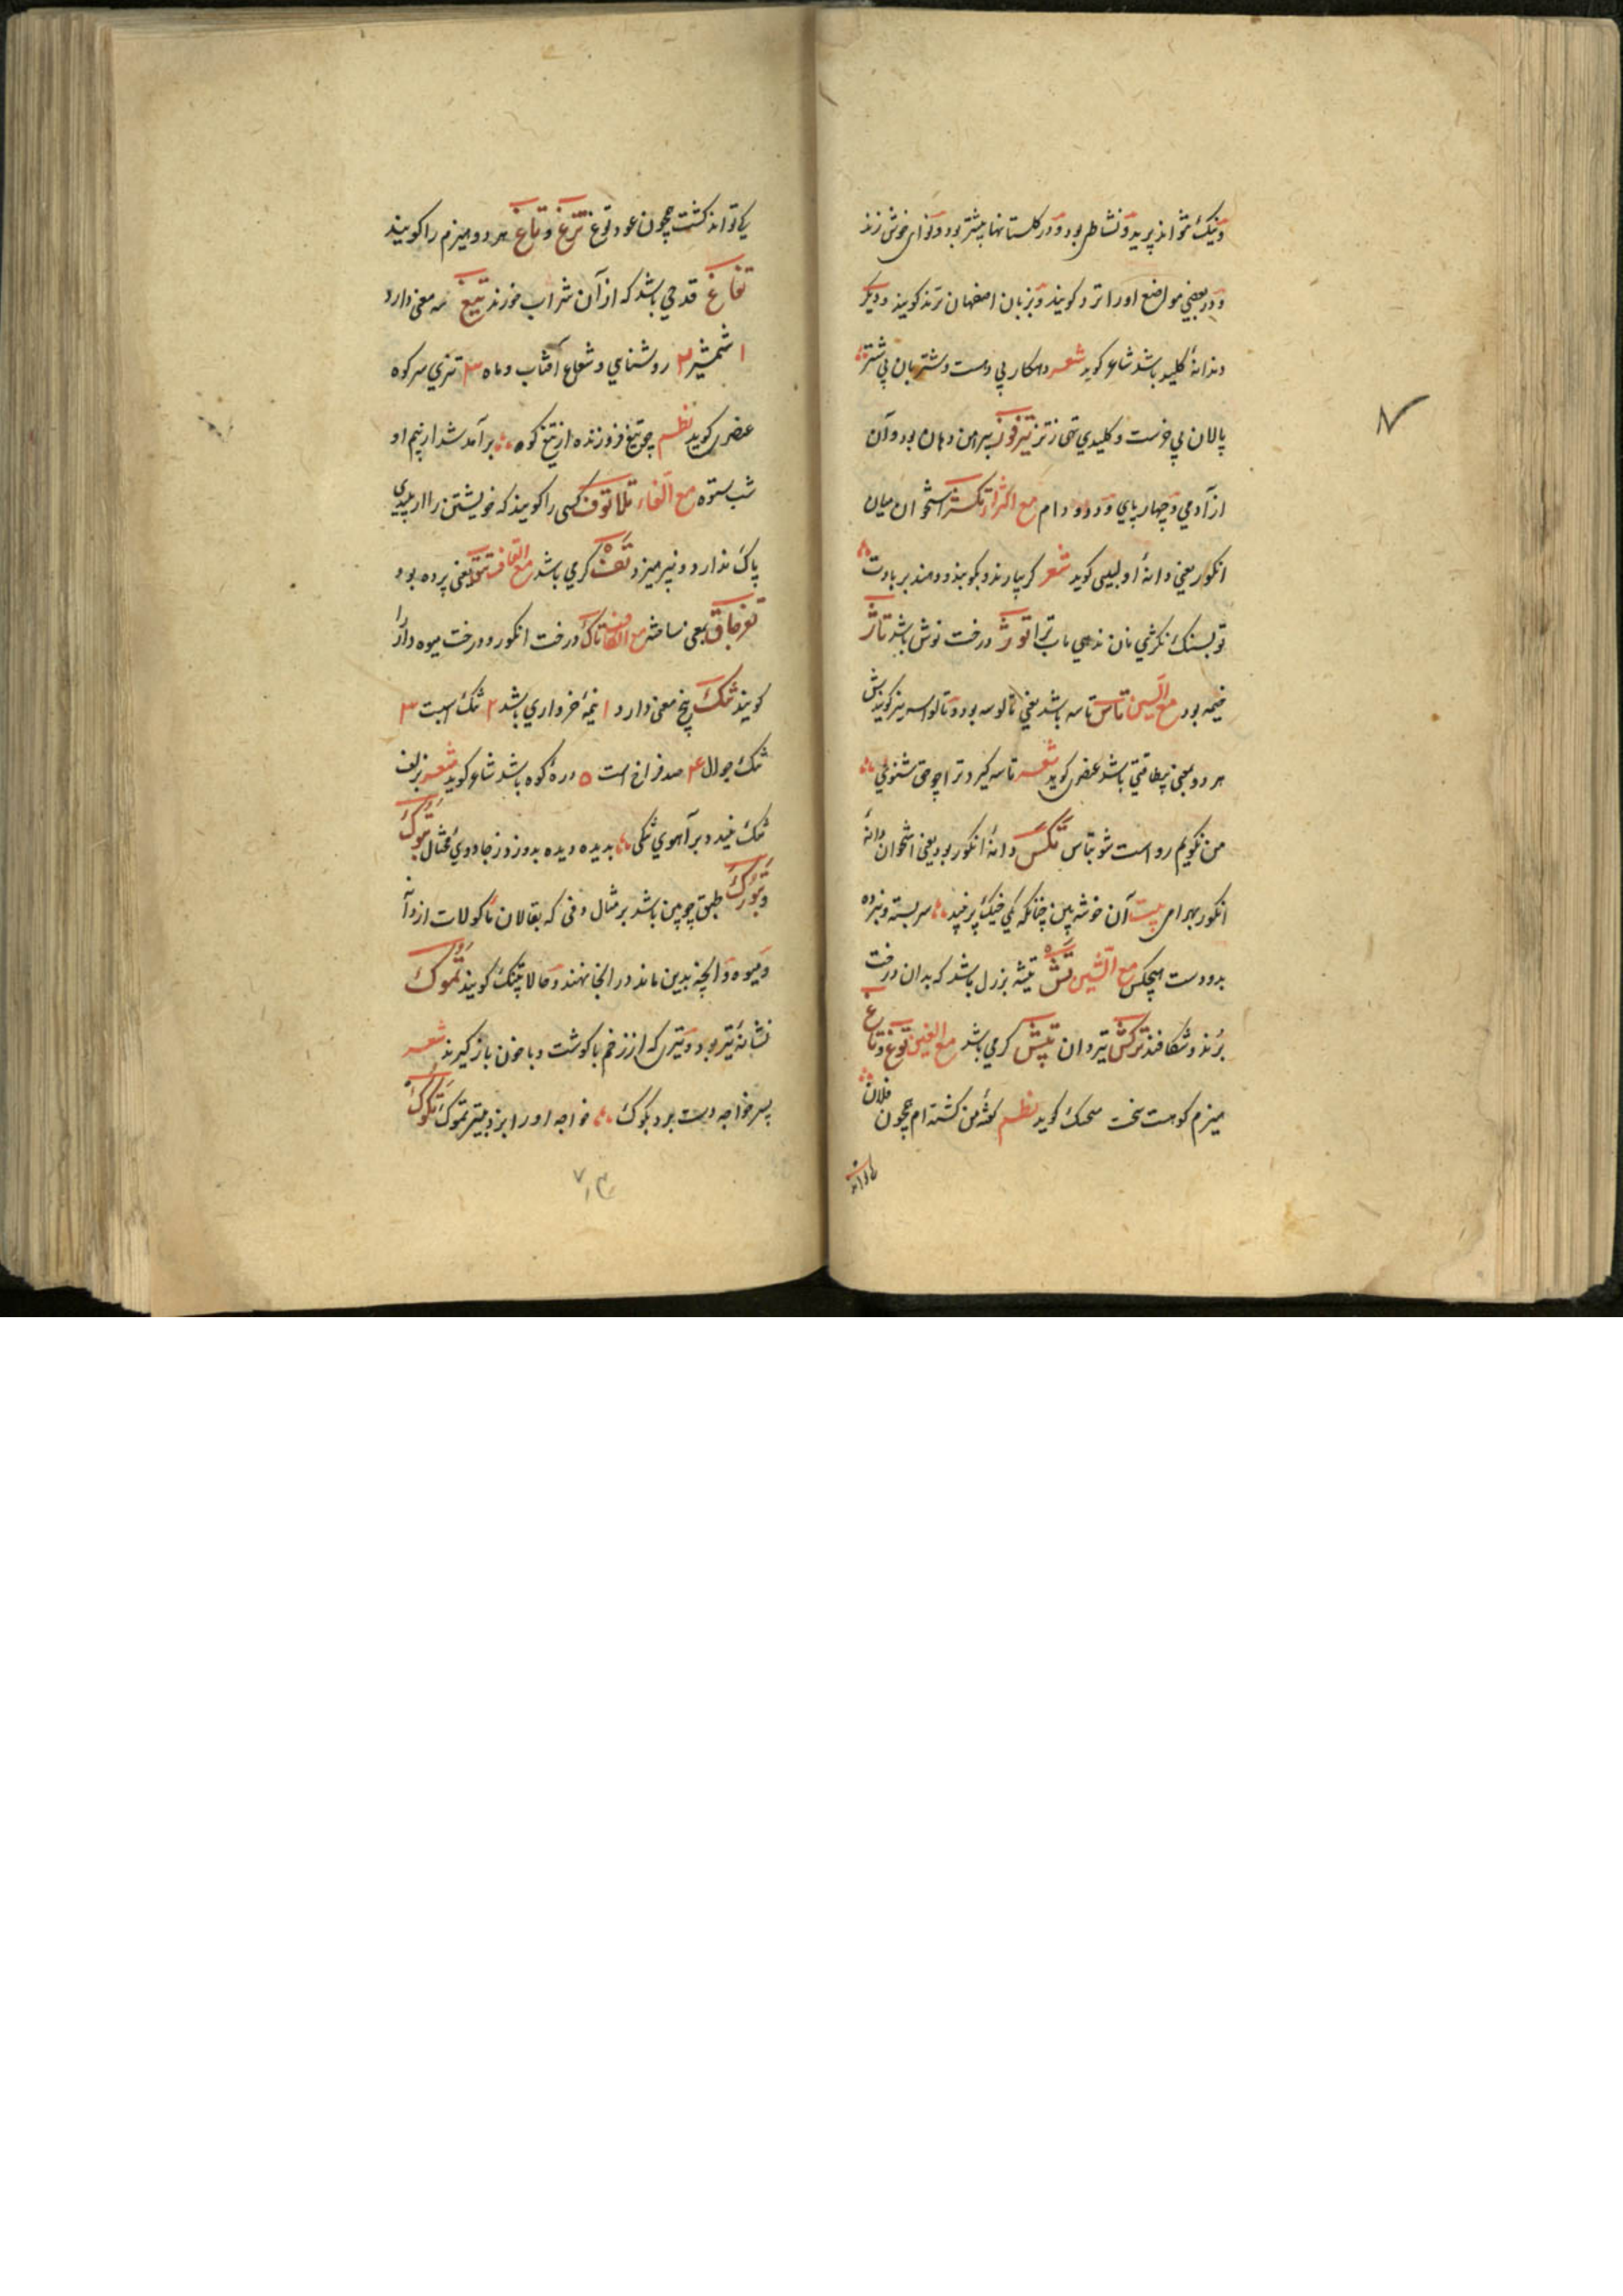 و نیک نتواند پرید و نشاطی بود و در کلستانها بیشتر بود و نوای خوش زند
و در بعضی مواضع اورا ترد کویند و بزبان اصفهان ترند کویند و دیکر
دندانهٔ کلید باشد شاعر کوید شعر دهکار بی دست و شتربان بی شتر
پالان بی خرست و کلیدی تهی ز تز تیرفوز پیرامن دهان بود و آن
از آدمی و چهار پای و دد و دام مع الزاء تکز استخوان میان
انکور یعنی دانهٔ او لبیبی کوید شعر کر بیارند و بکوبند و دهند بر بادت
تو بسنک نکژی نان ندهی باب ترا توژ درخت نوش باشد تاژ
خیمه بود مع السین تاس تاسه باشد یعنی تالوسه بود و تالواسه نیز کویندش
هر دو بمعنی بیطاقتی باشد عنصری کوید شعر تاسه کیرد ترا چو حق شنوی
من نکویم رواست شو بتاس تکس دانهٔ انکور بود یعنی استخوان دانهٔ
انکور بهرامی بیت آن خوشه بین چنانکه یکی خیک پر نبید سر بسته و نبرده
بدو دست هیچکس مع الشین تش تیشه بزرک باشد که بدان درخت
برند و شکافند ترکش تیردان تپش کرمی باشد مع الغین توغ و تاغ
هیزم کوهست سخت کوید نظم کشته ام همچون فلان
کی تواند
کی تواند کشت همچون عود توغ ترغ و تاغ هر دو هیزم را کویند
تفاغ قدحی باشد که از آن شراب خورند تیغ سه معنی دارد
۱ شمشیر ۲ روشنایی و شعاع آفتاب و ماه ۳ تیزی سر کوه
عنصری کوید نظم چو تیغ فروزنده از تیغ کوه برآمد شد از بیم او
شب ستوه مع الفاء تلاتوف کسی را کویند که خویشتن را از پلیدی
پاک ندارد و نپرهیزد تف کرمی باشد مع القاف تتق یعنی پرده بود
تفرجاق بمعنی مع الکاف تاک درخت انکور و درخت میوه دار را
کویند تنک پنج معنی دارد ۱ نیمهٔ خرواری باشد ۲ تنک اسبت ۳
تنک جوال ۴ ضد فراخ است ۵ درهٔ کوه باشد شاعر کوید شعر بزلف
تنک ببند و بر آهوی تنکی بدیده دیده بدوز و ز جادوی محتال تبوک
و تبورک طبق چوبین باشد بر مثال دفی که بقالان ماکولات از دانه
و میوه و آنچه بدین ماند در آنجا نهند و حالا تپنک کویند تموک
نشانهٔ تیر بود و تیری که از زخم با کوشت و با خون باز کیرند شعر
پسر خواجه دست برد بکوک خواجه او را بزد بتیر تموک تکوک